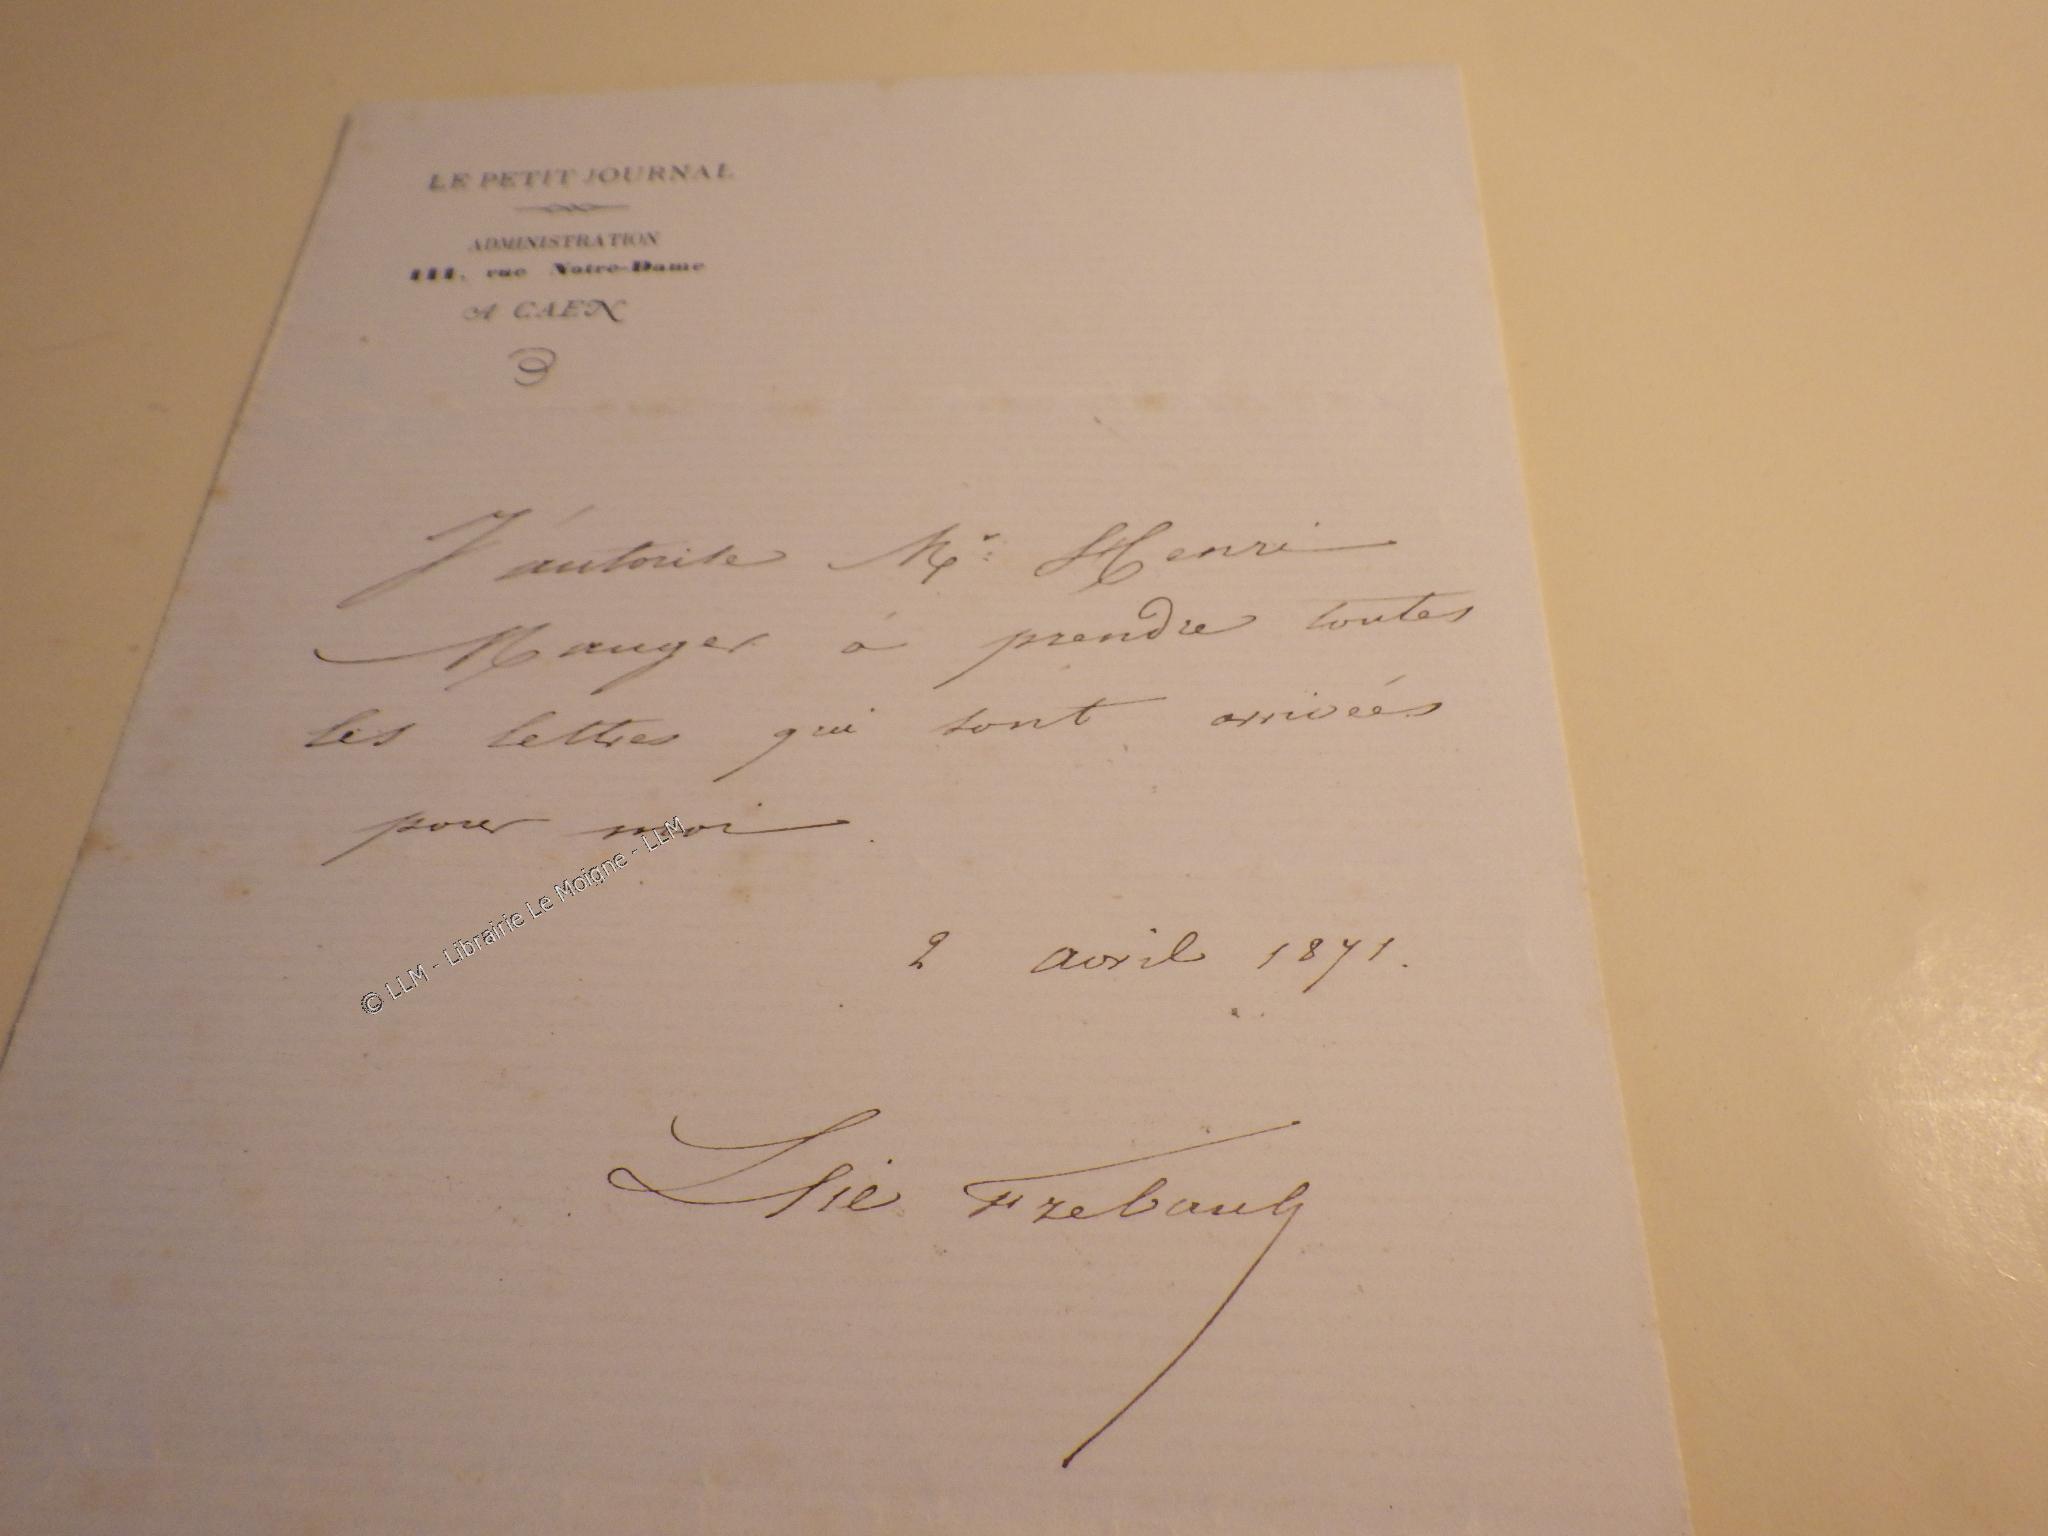 LE PETIT JOURNAL
ADMINISTRATION
111, rue Notre-Dame
A CAEN
J'autorise Mr. Henri
Mauger à prendre toutes
les lettres qui sont arrivées
pour moi.
© LLM - Librairie Le Moigne - LLM
2 avril 1871.
Elie Frébault